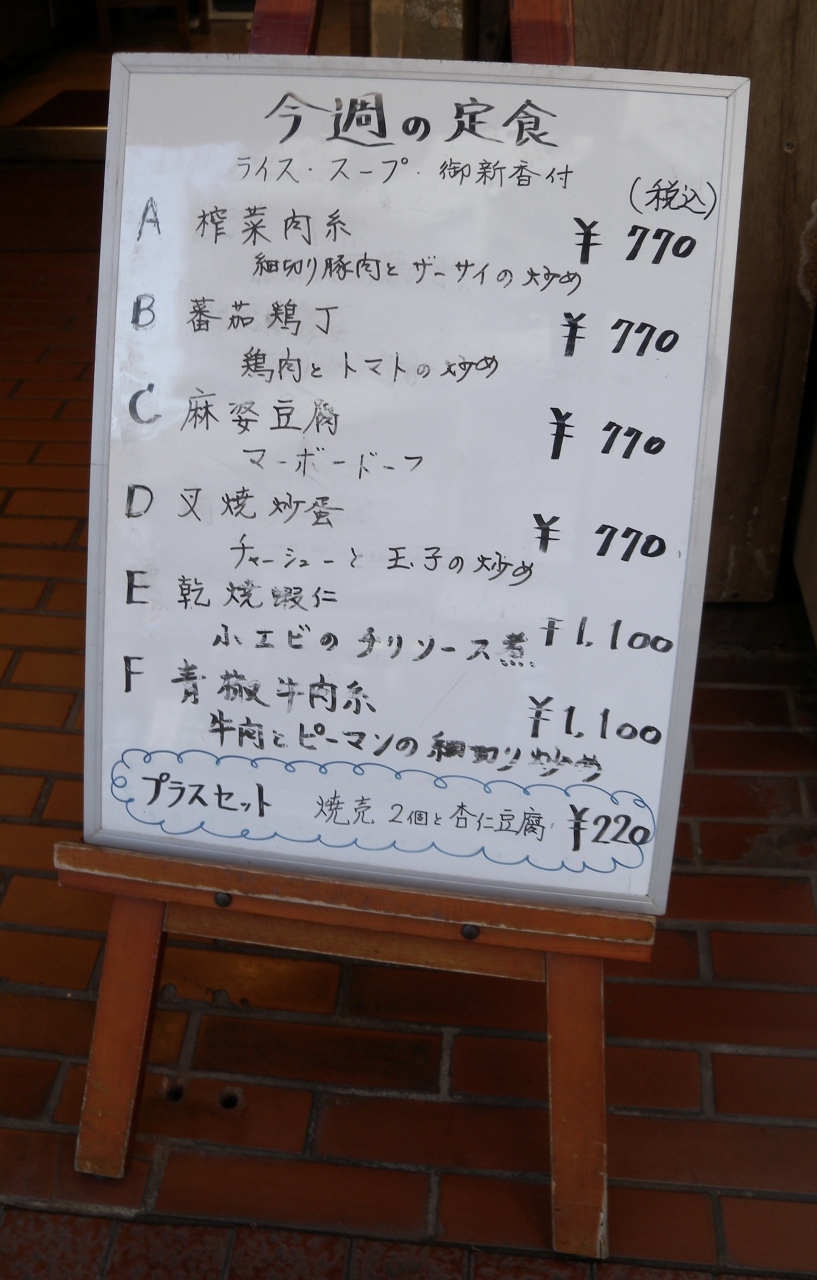 今週の定食
ライス・スープ・御新香付
(税込)
A 榨菜肉糸 ¥770
細切り豚肉とザーサイの炒め
B 蕃茄鶏丁 ¥770
鶏肉とトマトの炒め
C 麻婆豆腐 ¥770
マーボードーフ
D 叉焼炒蛋 ¥770
チャーシューと玉子の炒め
E 乾焼蝦仁
小エビのチリソース煮 ¥1,100
F 青椒牛肉糸 ¥1,100
牛肉とピーマンの細切り炒め
プラスセット 焼売2個と杏仁豆腐 ¥220